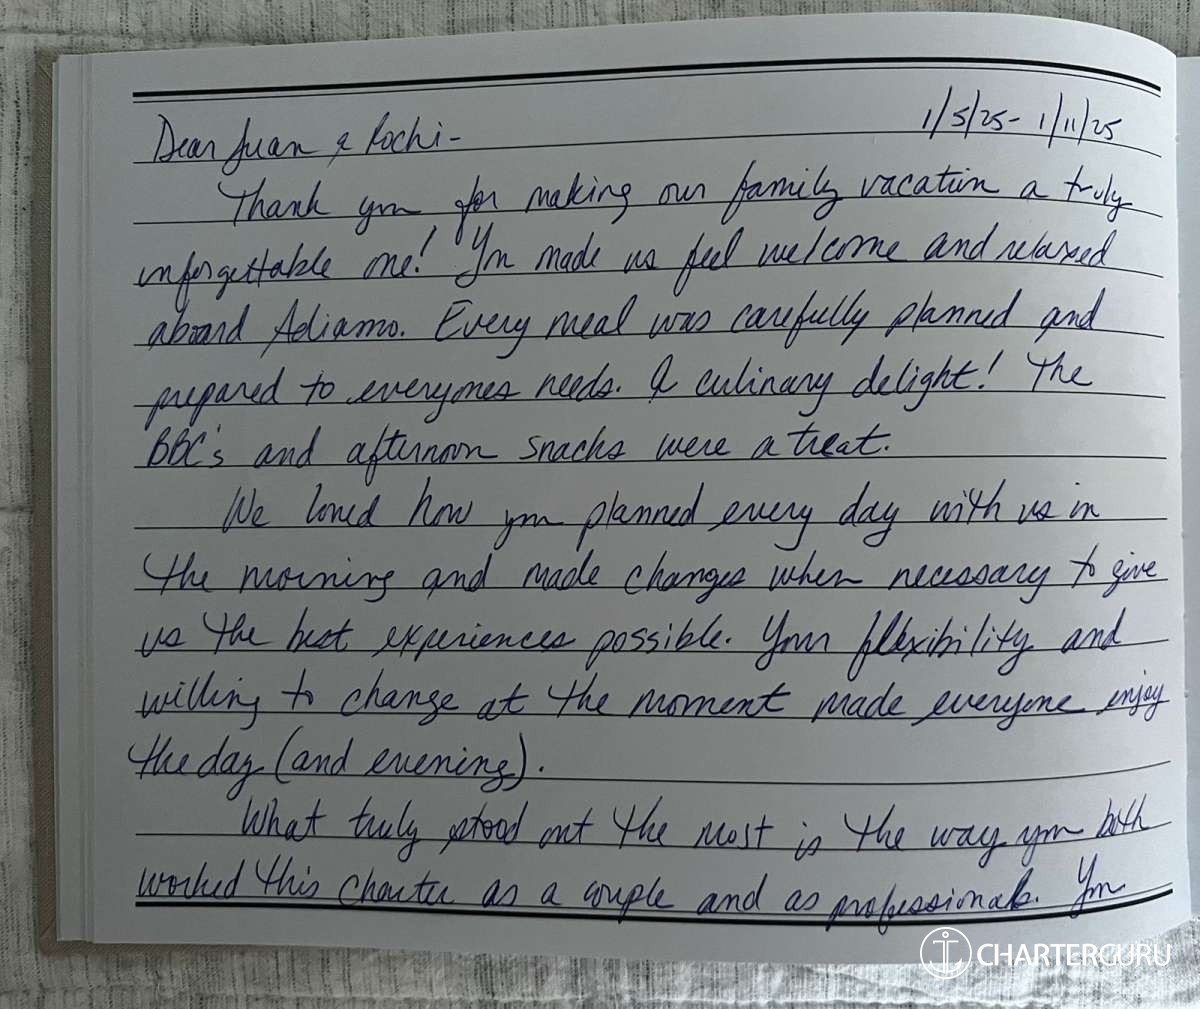 1/5/25 - 1/11/25
Dear Juan & Rochi -
Thank you for making our family vacation a truly
unforgettable one! You made us feel welcome and relaxed
aboard Adiamo. Every meal was carefully planned and
prepared to everyones needs. A culinary delight! The
BBC's and afternoon snacks were a treat.
We loved how you planned every day with us in
the morning and made changes when necessary to give
us the best experiences possible. Your flexibility and
willing to change at the moment made everyone enjoy
the day (and evening).
What truly stood out the most is the way you both
worked this charter as a couple and as professionals. You
CHARTERGURU